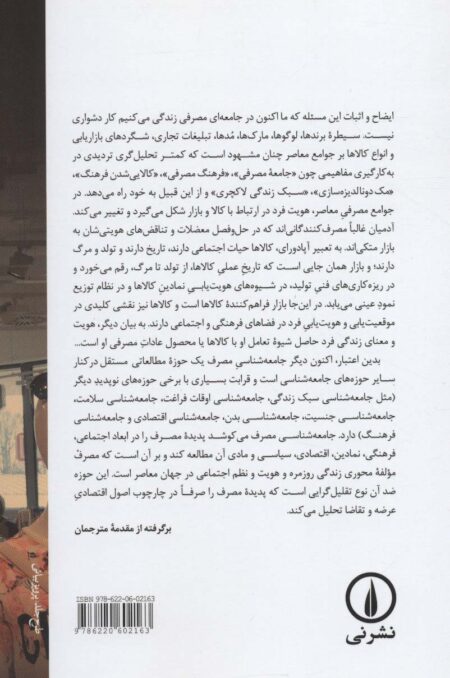 ایضاح و اثبات این مسئله که ما اکنون در جامعه‌ای مصرفی زندگی می‌کنیم کار دشواری
نیست. سیطرهٔ برندها، لوگوها، مارک‌ها، مُدها، تبلیغات تجاری، شگردهای بازاریابی
و انواع کالاها بر جوامع معاصر چنان مشهود است که کمتر تحلیل‌گری تردیدی در
به‌کارگیری مفاهیمی چون «جامعهٔ مصرفی»، «فرهنگ مصرفی»، «کالایی‌شدن فرهنگ»،
«مک‌دونالدیزه‌سازی»، «سبک زندگی لاکچری» و از این قبیل به خود راه می‌دهد. در
جوامع مصرفیِ معاصر، هویت فرد در ارتباط با کالا و بازار شکل می‌گیرد و تغییر می‌کند.
آدمیان غالباً مصرف‌کنندگانی‌اند که در حل‌وفصل معضلات و تناقض‌های هویتی‌شان به
بازار متکی‌اند. به تعبیر آپادورای، کالاها حیات اجتماعی دارند، تاریخ دارند و تولد و مرگ
دارند؛ و بازار همان جایی است که تاریخِ عملیِ کالاها، از تولد تا مرگ، رقم می‌خورد و
در ریزه‌کاری‌های فنیِ تولید، در شیوه‌های هویت‌یابیِ نمادینِ کالاها و در نظام توزیع
نمودِ عینی می‌یابد. در این‌جا بازار فراهم‌کنندهٔ کالاها است و کالاها نیز نقشی کلیدی در
موقعیت‌یابی و هویت‌یابیِ فرد در فضاهای فرهنگی و اجتماعی دارند. به بیان دیگر، هویت
و معنای زندگی فرد حاصل شیوهٔ تعامل او با کالاها یا محصول عاداتِ مصرفیِ او است...
بدین اعتبار، اکنون دیگر جامعه‌شناسیِ مصرف یک حوزهٔ مطالعاتی مستقل در کنار
سایر حوزه‌های جامعه‌شناسی است و قرابت بسیاری با برخی حوزه‌های نوپدیدِ دیگر
(مثل جامعه‌شناسی سبک زندگی، جامعه‌شناسی اوقات فراغت، جامعه‌شناسی سلامت،
جامعه‌شناسی جنسیت، جامعه‌شناسی بدن، جامعه‌شناسی اقتصادی و جامعه‌شناسی
فرهنگ) دارد. جامعه‌شناسی مصرف می‌کوشد پدیدهٔ مصرف را در ابعاد اجتماعی،
فرهنگی، نمادین، اقتصادی، سیاسی و مادی آن مطالعه کند و بر آن است که مصرف
مؤلفهٔ محوری زندگی روزمره و هویت و نظم اجتماعی در جهان معاصر است. این حوزه
ضد آن نوع تقلیل‌گرایی است که پدیدهٔ مصرف را صرفاً در چارچوب اصول اقتصادیِ
عرضه و تقاضا تحلیل می‌کند.
برگرفته از مقدمهٔ مترجمان
ISBN 978-622-06-0216-3
9786220602163
نشرنی
طرح جلد: پرویز بیانی